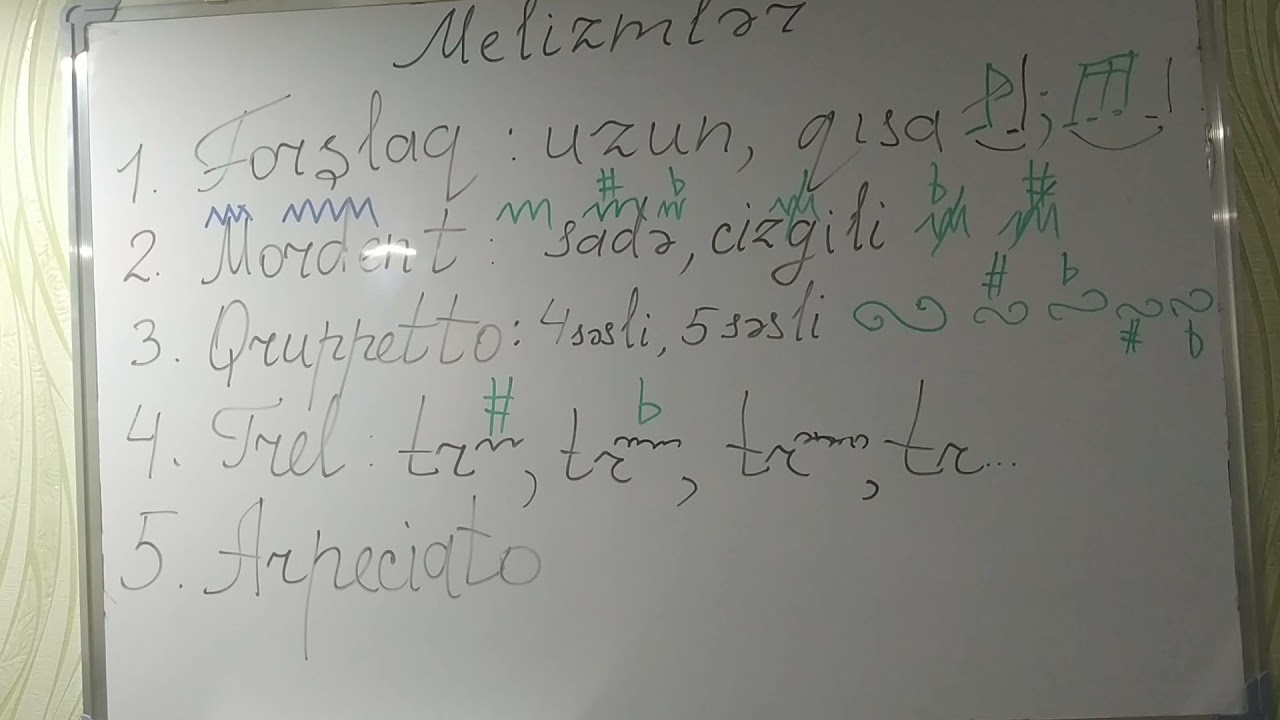 Melizmlər
1. Forşlaq: uzun, qısa ;
2. Mordent: sadə, cizgili
3. Qruppetto: 4səsli, 5səsli
4. Trel: tr, tr, tr, tr...
5. Arpeciato